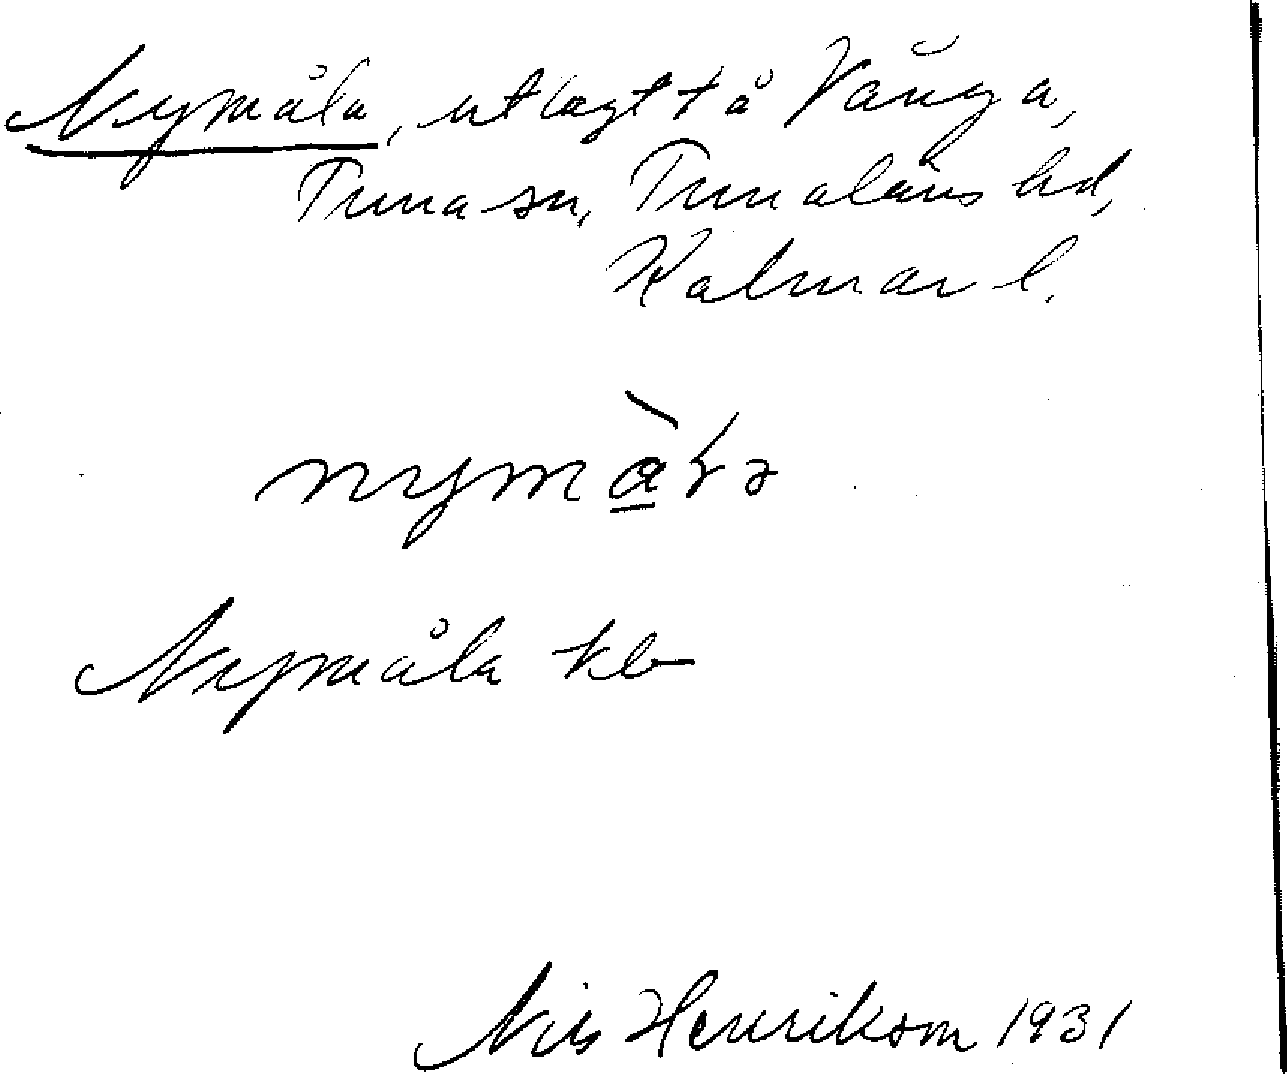 Nymåla, utlagt t å Vånga,
Tuna sn, Tunaläns hd,
Kalmar l.
Nymåla kb
Nils Henrikson 1931